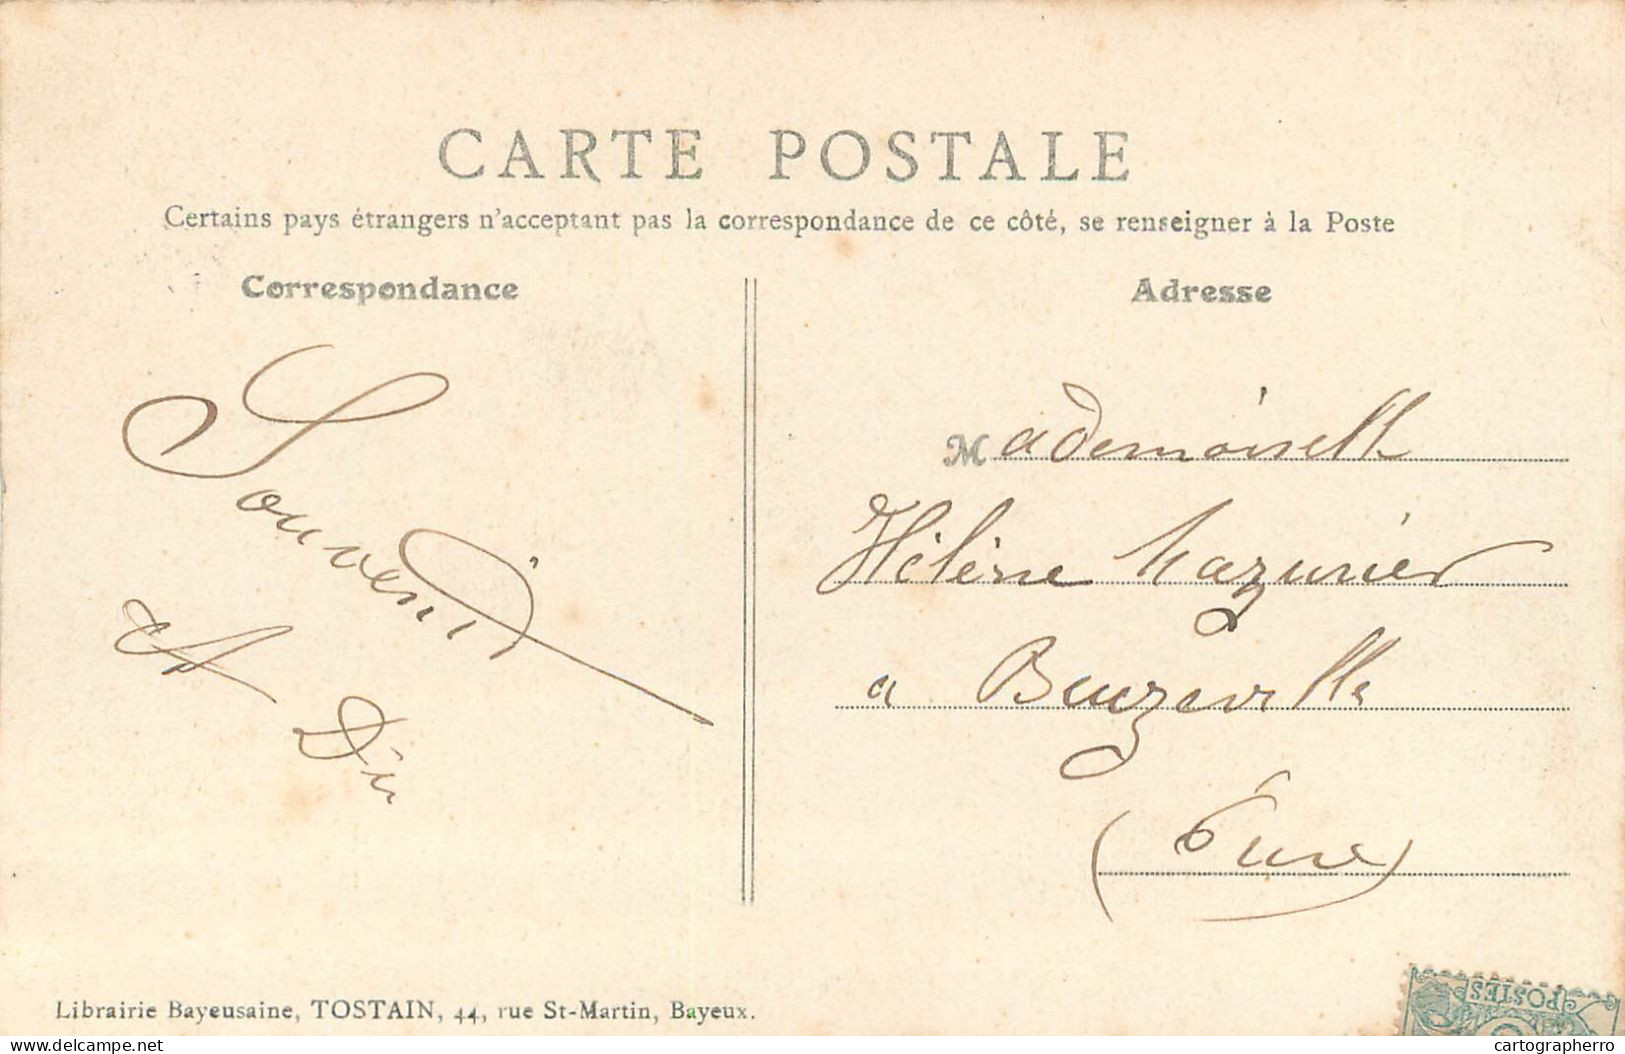 CARTE POSTALE
Certains pays étrangers n'acceptant pas la correspondance de ce côté, se renseigner à la Poste
Correspondance
Adresse
Souvenir
Mademoiselle
Hélène Mazurier
a Beuzeville
(Eure)
Librairie Bayeusaine, TOSTAIN, 44, rue St-Martin, Bayeux.
POSTES
delcampe.net
cartographerro